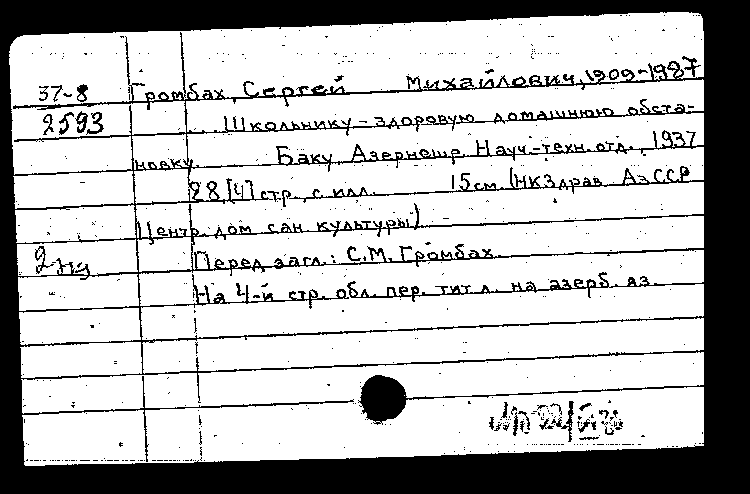 37-8 Громбах, Сергей Михайлович, 1909-1987
2593 ... Школьнику - здоровую домашнюю обста-
новку. Баку, Азернешр. Науч.-техн. отд., 1937
28 [4] стр., с илл. 15 см. (НКЗдрав АзССР
Центр. дом сан. культуры)
Перед загл.: С.М. Громбах.
На 4-й стр. обл. пер. тит л. на азерб. яз.